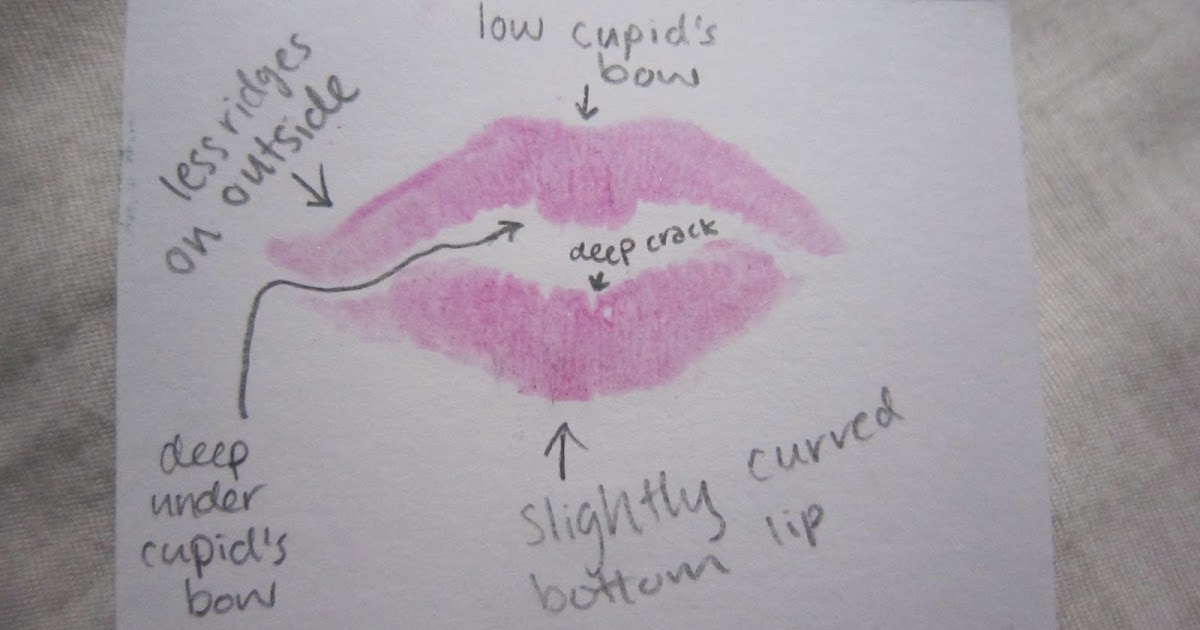 low cupid's
bow
less ridges
on outside
deep crack
deep
under
cupid's
bow
slightly curved
bottom lip